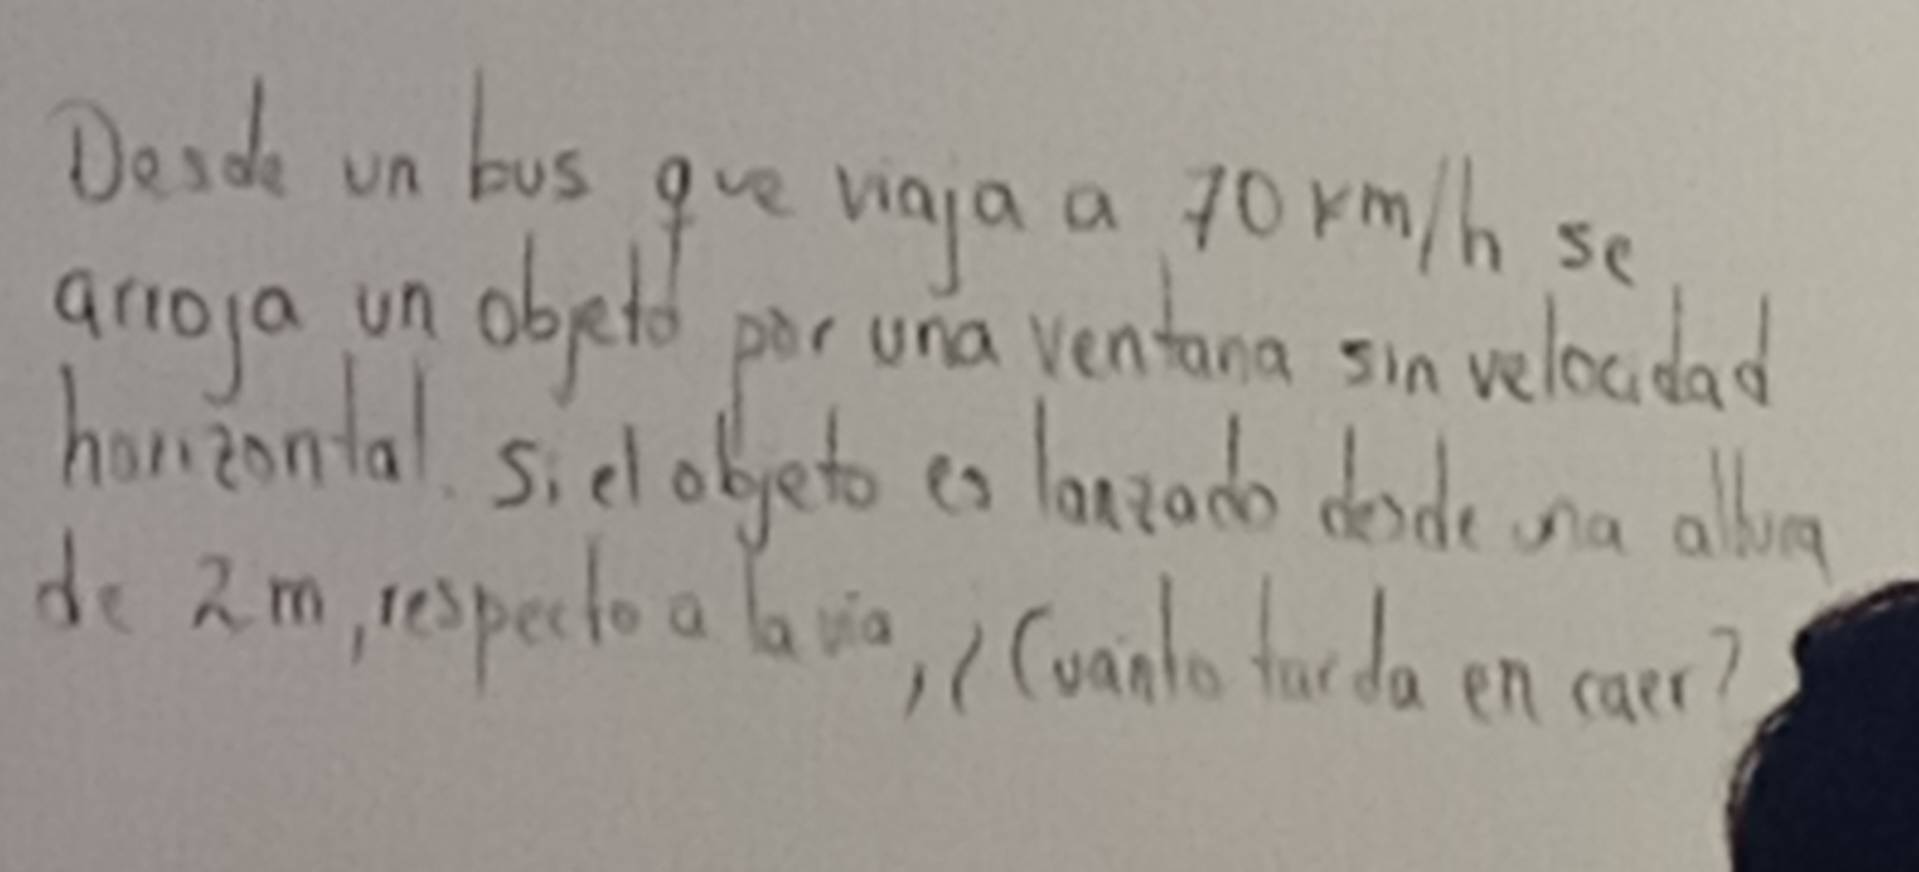 Desde un bus que viaja a 70 km/h se
arroja un objeto por una ventana sin velocidad
horizontal. Si el objeto es lanzado desde una altura
de 2m, respecto a la vía, ¿Cuánto tarda en caer?